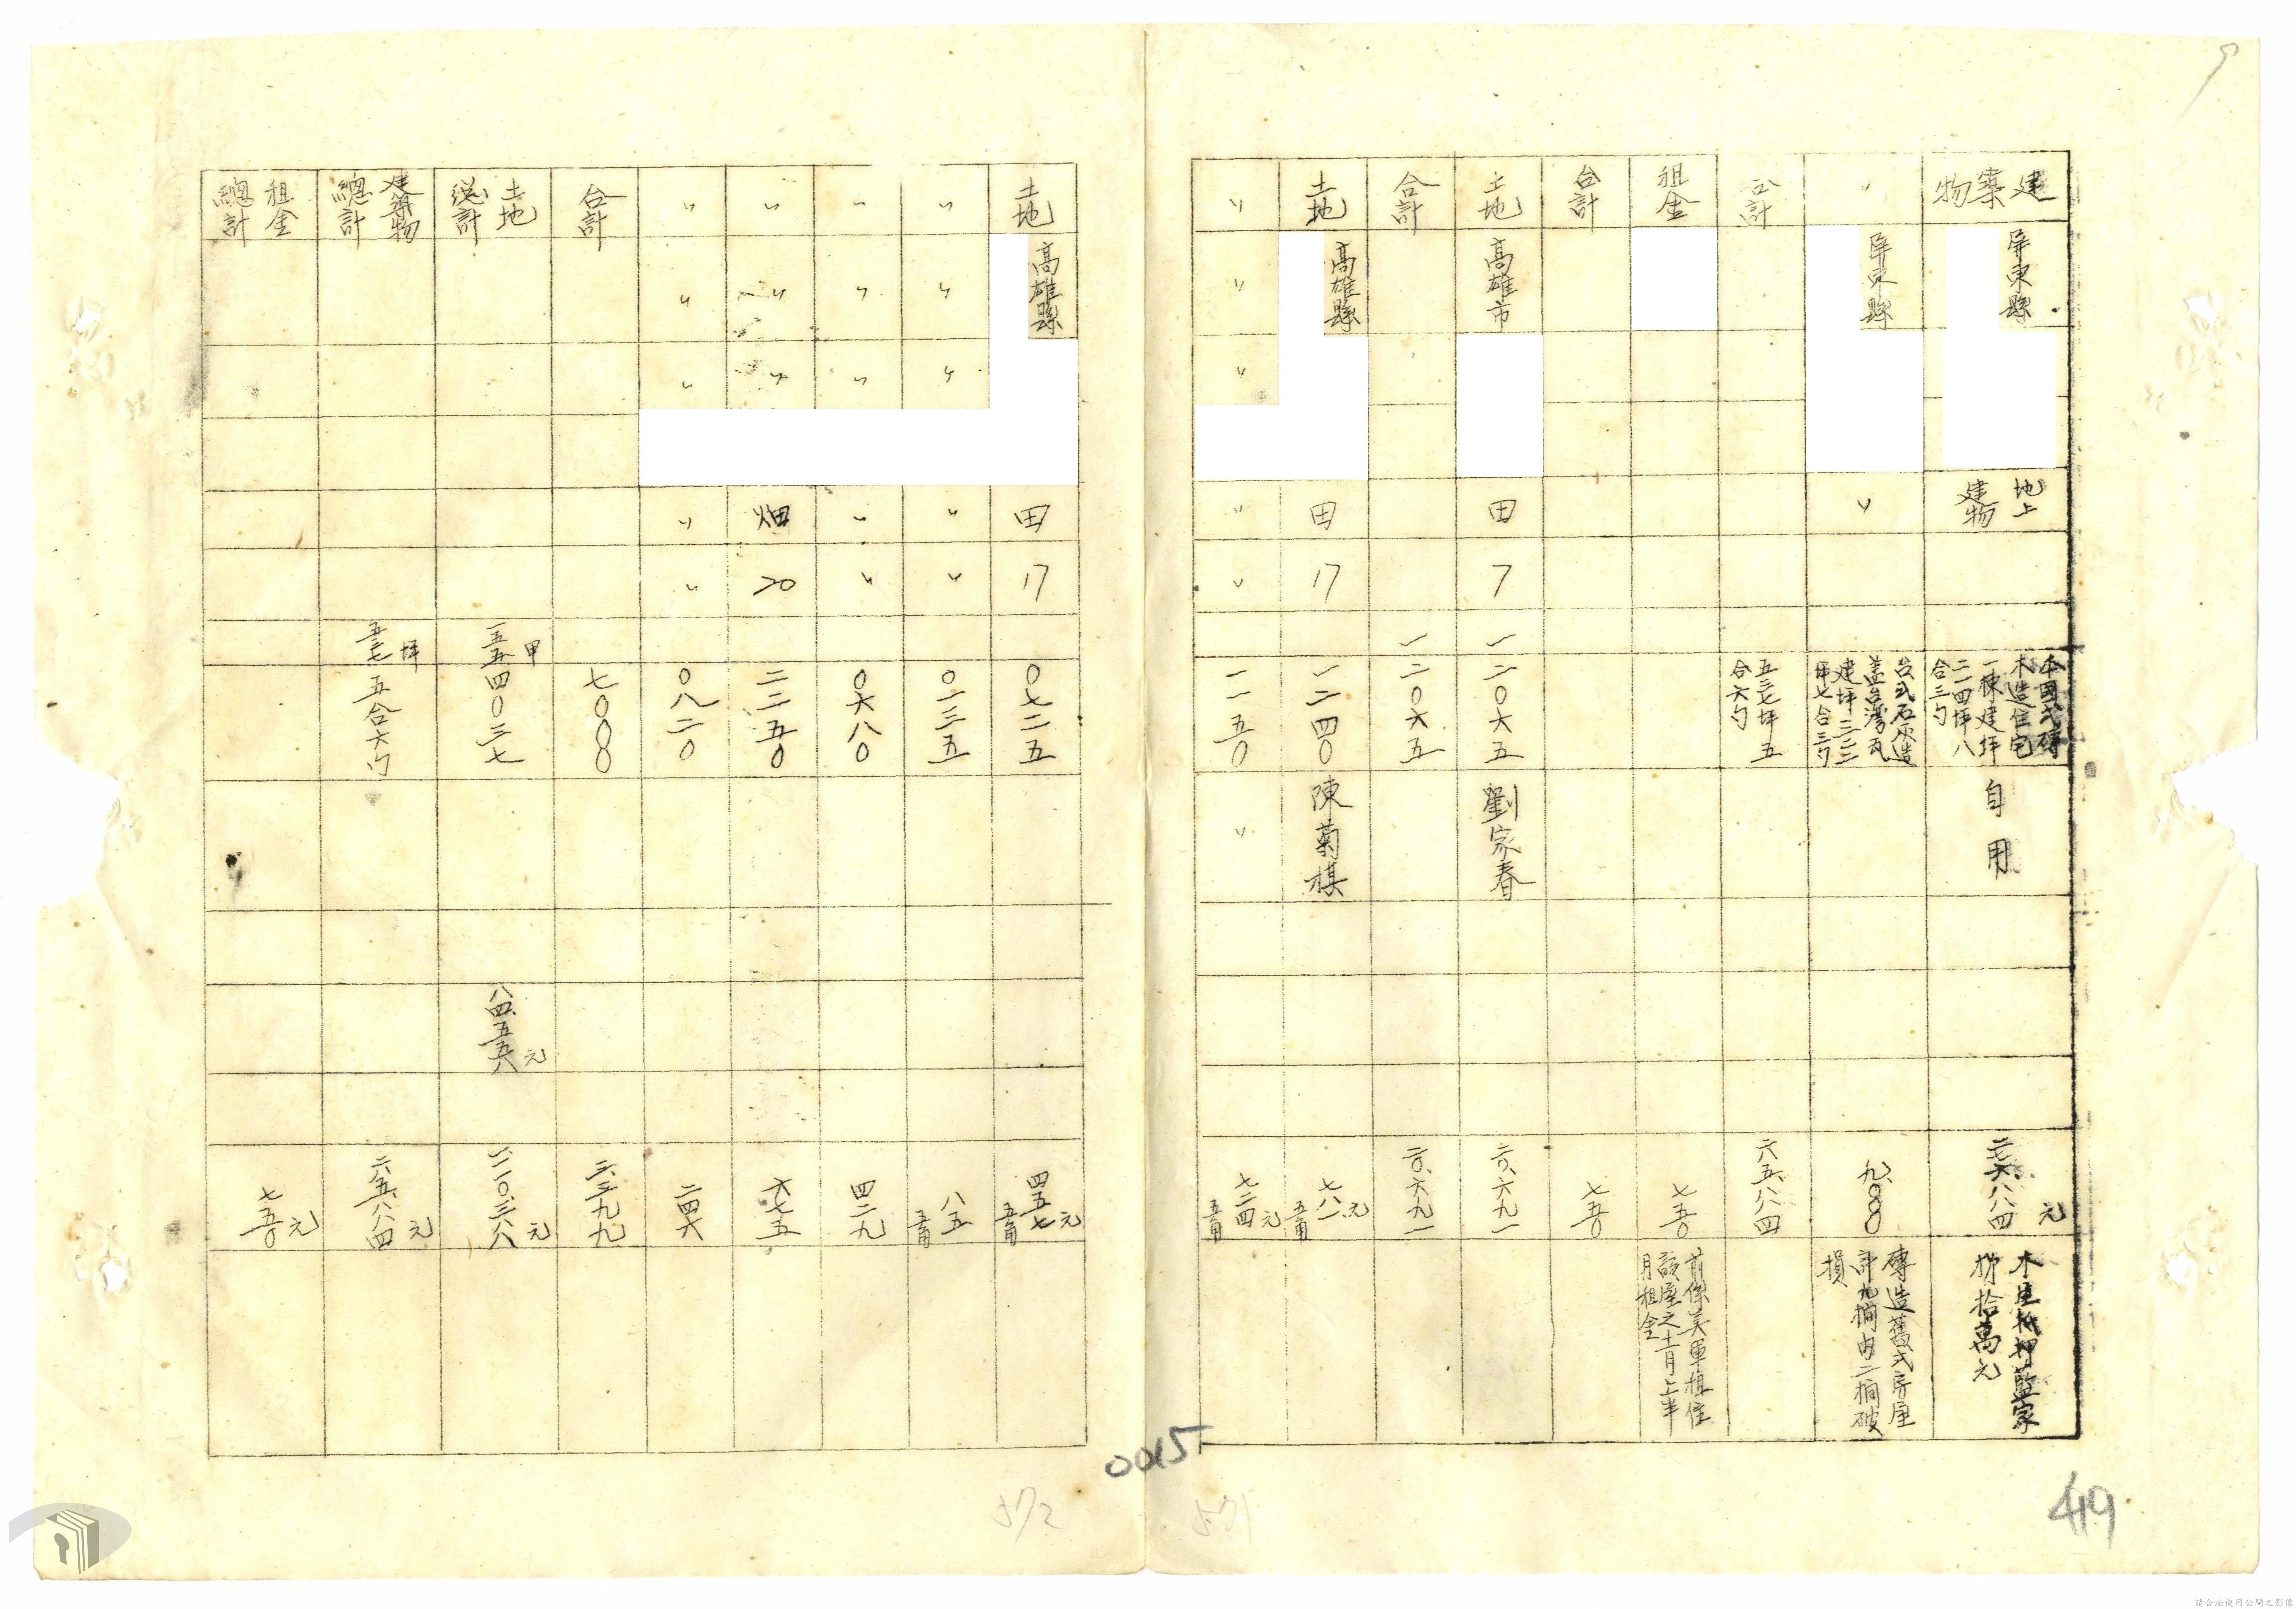 建築物 屏東縣 地上建物 本国式磚木造住宅一棟建坪二一四坪八合三勺 自用 元 木屋抵押藍家掰拾萬元
〃 屏東縣 〃 台式石灰造蓋台灣瓦建坪三二二坪七合三勺 九、〇〇〇 磚造舊式房屋計九間內二間破損
合計 五三七坪五合六勺 六五、八八四
租金 七五〇 前係美軍租住該屋之十一月上半月租金
合計 七五〇
土地 高雄市 田 7 一 二〇六五 劉家春 二〇、六九一
合計 一 二〇六五 二〇、六九一
土地 高雄縣 田 17 一二四〇 陳菊棋 七八一元五角
〃 〃 〃 〃 〃 一一五〇 〃 七二四元五角
土地 高雄縣 田 17 〇七二五 四五七元五角
〃 〃 〃 〃 〃 〇一三五 八五五角
〃 〃 〃 〃 〃 〇六八〇 四二九
〃 〃 〃 畑 20 二二五〇 六七五
〃 〃 〃 〃 〃 〇八二〇 二四六
合計 七〇〇〇 三、三九九
土地總計 甲 四〇三七 元
建築物總計 五三七坪 五合六勺 六五、八八四元
租金總計 七五〇元
0015
571
572
419
請合法使用公開之影像